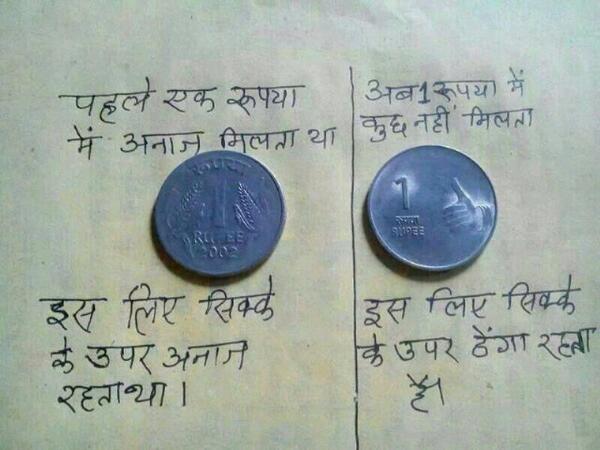 पहले एक रूपया
में अनाज मिलता था
रुपया
1
RUPEE
2002
इस लिए सिक्के
के उपर अनाज
रहता था।
अब 1 रूपया में
कुछ नहीं मिलता
1
रुपया
RUPEE
इस लिए सिक्के
के उपर ठेंगा रहता
है।